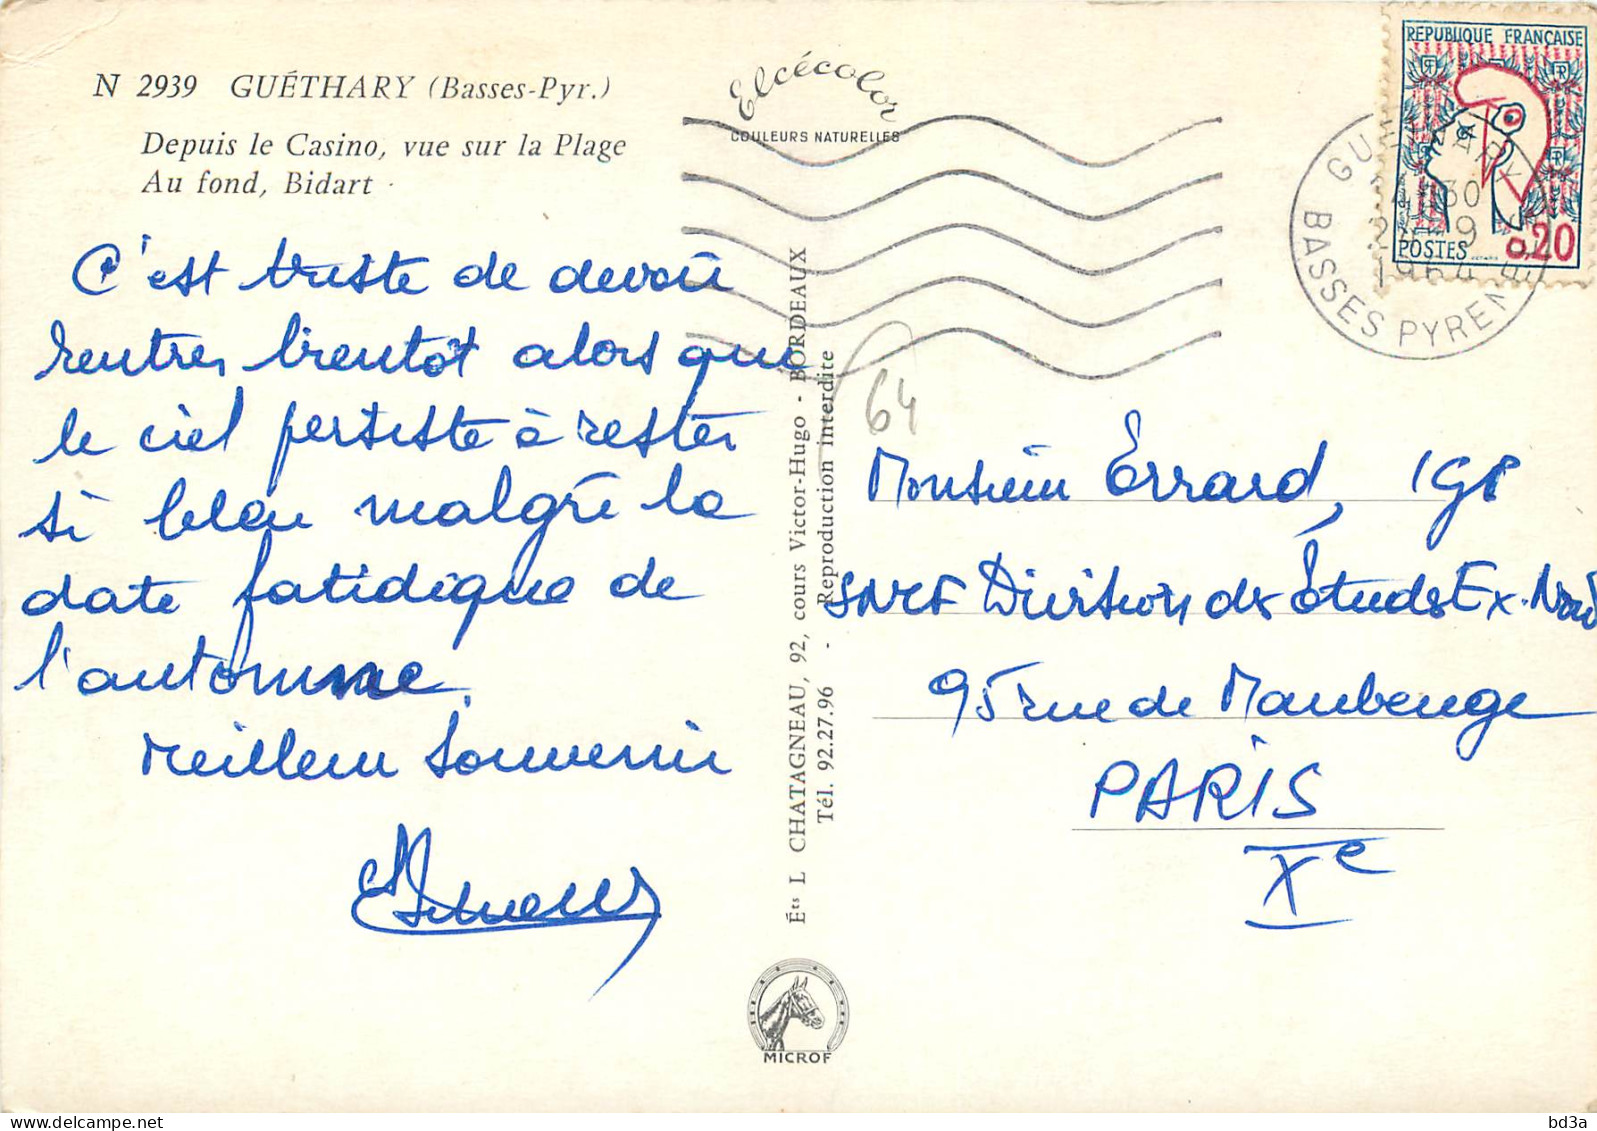 N 2939 GUÉTHARY (Basses-Pyr.)
Depuis le Casino, vue sur la Plage
Au fond, Bidart
Elcécolor
COULEURS NATURELLES
REPUBLIQUE FRANÇAISE
POSTES 0,20
GUETHARY
30
1964
BASSES PYRENEES
C'est triste de devoir
rentrer bientôt alors que
le ciel persiste à rester
si bleu malgré la
date fatidique de
l'automne.
Meilleur souvenir
Éts L CHATAGNEAU, 92, cours Victor-Hugo - BORDEAUX
Tél. 92.27.96 - Reproduction interdite
64
Monsieur Errard, IGP
SNCF Division des Études Ex. Nord
95 rue de Maubeuge
PARIS
Xe
MICROF
bd3a